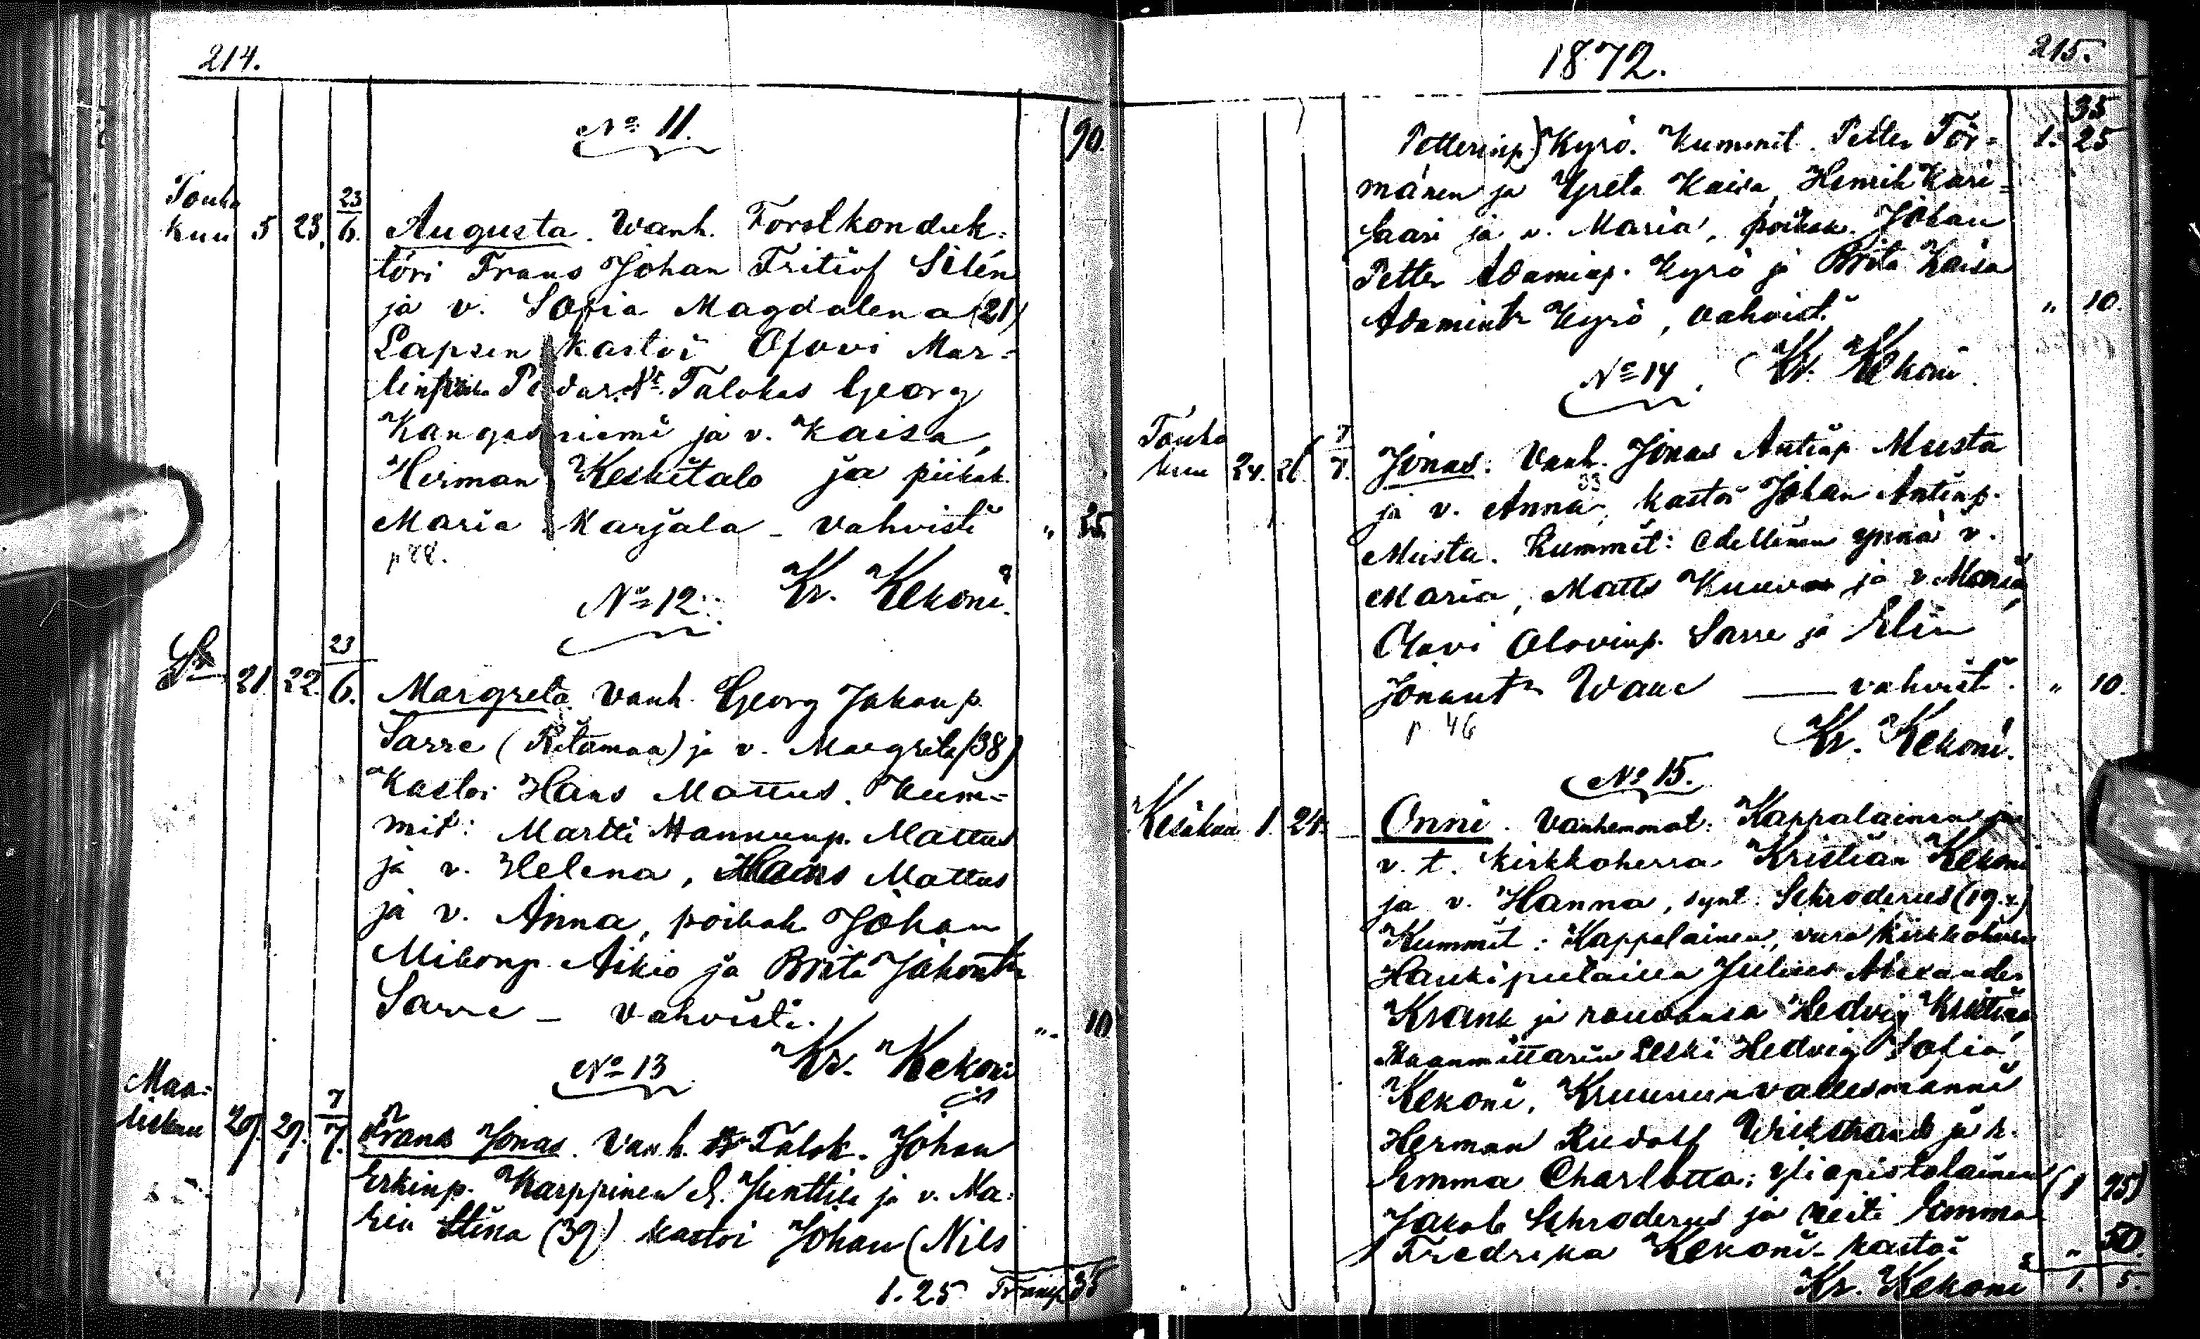 214.
No 11.
90.
Touko
kuu 5 23. 23/6. Augusta. Wanh. Forstkonduk=
töri Frans Johan Fritiof Silén
ja v. Sofia Magdalena (21)
Lapsen kastoi Olovi Mar=
Talokas Georg
Kangasniemi ja v. Kaisa,
Herman Keskitalo ja piikak.
Maria Karjala – vahvisti " 25
p 88.
Kr. Kekoni.
No 12.
21. 22. 23/6. Margreta. Vanh. Georg Jakonp.
Sarre (Riitamaa) ja v. Margreta (38)
Kastoi Hans Mattus. Kum=
mit: Martti Hannunp. Mattus
ja v. Helena, Hans Mattus
ja v. Anna, poikak. Johan
Mikonp. Aikio ja Brita Jakontr
Sarre – vahvisti. " 10
Kr. Kekoni
No 13
Maa=
liskuu 29. 29. 7/7. Frans Jonas. Vanh. Talok. Johan
Erkinp. Karppinen ja v. Ma=
ria Stina (39) kastoi Johan (Nils
1.25 Transp. 35
1872.
215.
35
Petterinp.) Kyrö. Kummit. Petter Tör= 1. 25
mänen ja Greta Kaisa, Henrik Kari=
saari ja v. Maria, poikak. Johan
Petter Adaminp. Kyrö ja Brita Kaisa
Adamintr Kyrö, vahvisti " 10.
Kr. Kekoni.
No 14.
Touko
kuu 24. 26. 7/7. Jonas. Vanh. Jonas Antinp. Musta
ja v. Anna, 33 kastoi Johan Antinp.
Musta. Kummit: Edellinen ynnä v.
Maria, Matts Kuuva ja v. Maria,
Olavi Olovinp. Sarre ja Elin
Jonuntr — vahvisti. " 10.
p. 46
Kr. Kekoni.
No 15.
Kesäkuu 1. 24. – Onni. Vanhemmat: Kappalainen ja
v. t. kirkkoherra Kristian Kekoni
ja v. Hanna, synt. Schroderus (19.)
Kummit: Kappalainen, vara kirkkoherra
Haukiputailla Julius Alexander
Krank ja rouvansa Hedvig Kristina
Maanmittarin Leski Hedvig Sofia
Kekoni, Kruununvallesmanni
Herman Rudolf Wikstrand ja r.
Emma Charlotta; yliopistolainen (1 95)
Jakob Schroderus ja neiti Emma
Fredrika Kekoni – kastoi " 50.
Kr. Kekoni 1. 5.